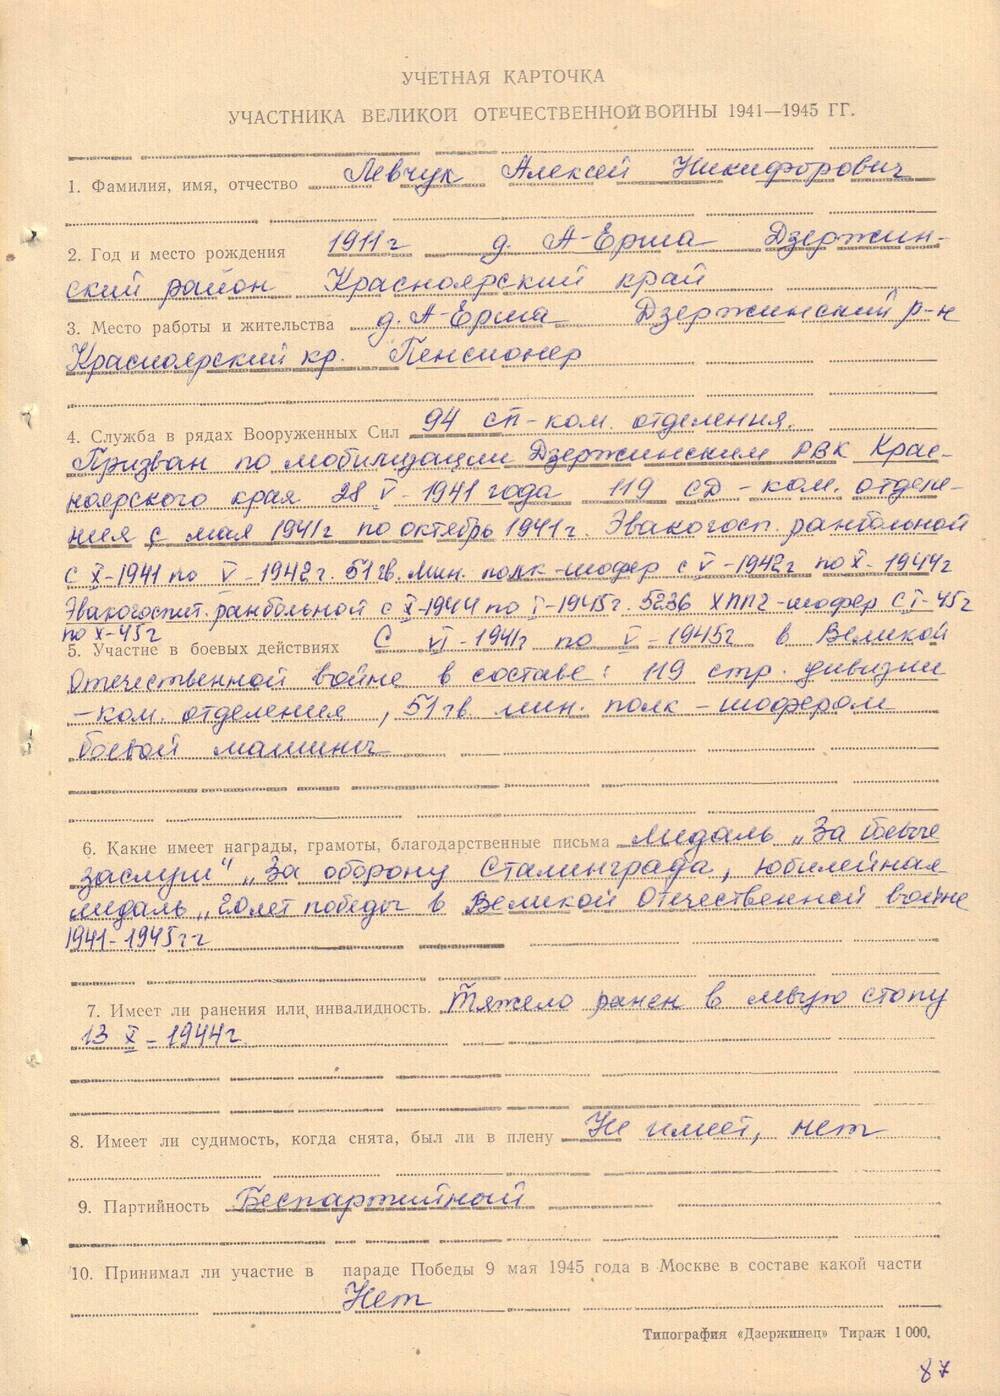 УЧЕТНАЯ КАРТОЧКА
УЧАСТНИКА ВЕЛИКОЙ ОТЕЧЕСТВЕННОЙ ВОЙНЫ 1941—1945 ГГ.
1. Фамилия, имя, отчество Левчук Алексей Никифорович
2. Год и место рождения 1911 г д. А-Ерша Дзержин-
ский район Красноярский край
3. Место работы и жительства д. А-Ерша Дзержинский р-н
Красноярский кр. Пенсионер
4. Служба в рядах Вооруженных Сил 94 сп - ком. отделения.
Призван по мобилизации Дзержинским РВК Крас-
ноярского края 28 V - 1941 года 119 СД - ком. отделе-
ния с мая 1941г по октябрь 1941 г. Эвакогосп. ранбольной
с X-1941 по V - 1942 г. 51 гв. мин. полк - шофер с V - 1942г по X - 1944г
Эвакогоспит. ранбольной с X-1944 по I-1945г. 5236 ХППГ - шофер с I-45г
по X-45г
5. Участие в боевых действиях С VI - 1941г по V - 1945г в Великой
Отечественной войне в составе: 119 стр. дивизии
- ком. отделения, 51 гв. мин. полк - шофером
боевой машины
6. Какие имеет награды, грамоты, благодарственные письма Медаль „За боевые
заслуги" „За оборону Сталинграда, юбилейная
медаль „20 лет победы в Великой Отечественной войне
1941-1945 г-г
7. Имеет ли ранения или инвалидность. Тяжело ранен в левую стопу
13 X - 1944г.
8. Имеет ли судимость, когда снята, был ли в плену Не имеет, нет
9. Партийность Беспартийный
10. Принимал ли участие в параде Победы 9 мая 1945 года в Москве в составе какой части
Нет
Типография «Дзержинец» Тираж 1 000.
87